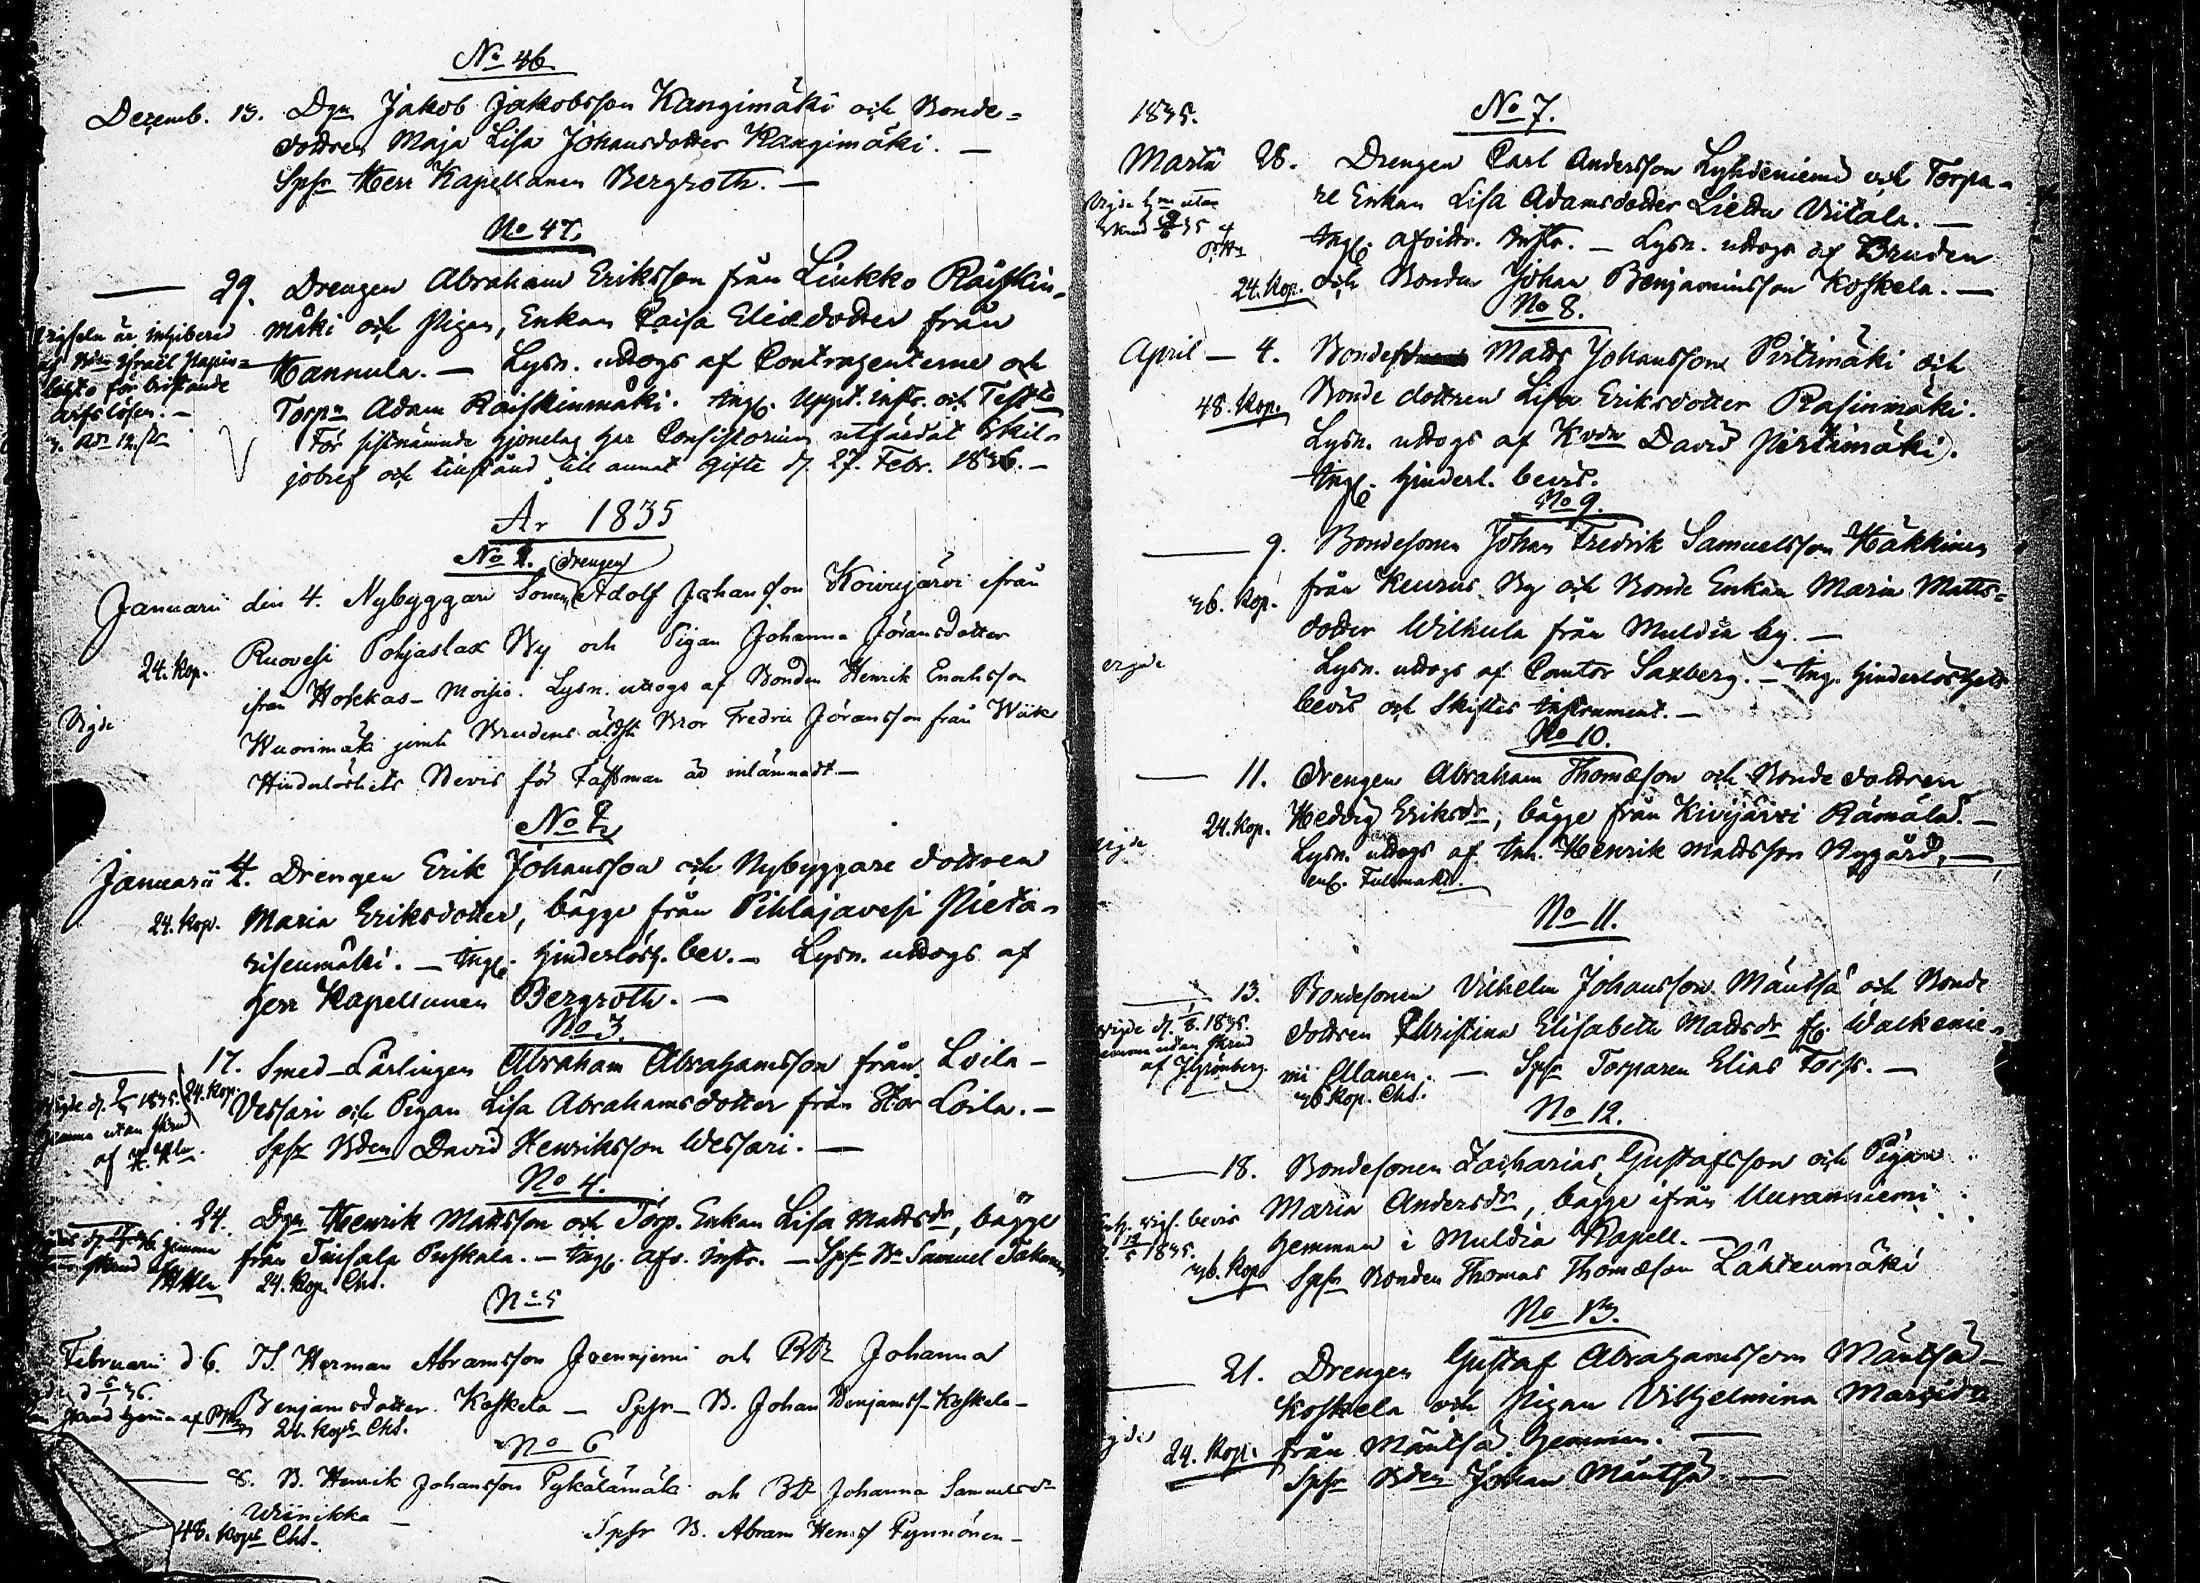 No 46
Decemb. 13. Dgn Jakob Jakobsson Kangimäki och Bonde=
dottren Maja Lisa Johansdotter Kangimäki. —
Spsr Herr Kapellanen Bergroth. —
No 47.
— 29. Drengen Abraham Eriksson från Liukko Räiskin-
mäki och Pigan, Enkan Caisa Elixdotter från
Hannula. — Lysn. uttogs af Contragenterne och
Torpn Adam Räiskinmäki. Ingf. Uppit. instr. och
För sistnämnde hjonelag har Consistorium utfärdat Skil-
jobref och tillstånd till annat Gifte d. 27. Febr. 1836. —
År 1835
No 1. (drengen)
Januarii den 4. Nybyggare Sonen Adolf Johansson Koivujärvi ifrån
24. Kop. Ruovesi Pohjaslax By och Pigan Johanna Jöransdotter
ifrån Hoskkas-Moisio. Lysn. uttogs af Bonden Henrik Enochsson
Vigde Wuorimäki jemte Brudens äldste Bror Fredric Jöransson från Wiik
Hinderlöshets Bevis för Fästman är inlämnadt. —
No 2
Januarii 4. Drengen Erik Johansson och Nybyggare dottren
24. Kop. Maria Eriksdotter, bägge från Pihlajavesi Pieta-
risenmäki. — Ingf. hinderlösh. bev. — Lysn. uttogs af
Herr Kapellanen Bergroth. —
No 3.
17. Smed-Lärlingen Abraham Abrahamsson från Loila-
24. Kop. Vessari och Pigan Lisa Abrahamsdotter från Stor Loila. —
Spsr Bden David Henriksson Wessari. —
No 4.
24. Dgn Henrik Mattsson och Torp. Enkan Lisa Mattsdr, bägge
från Tiusala Puskala. — Ingf. Afv. instr. — Spsr Bn Samuel
24. Kop. Chs.
No 5
Februarii d 6. Herman Abramsson Joenniemi och BDr Johanna
Benjamsdotter Koskela — Spsr B. Johan Benjamss. Koskela —
24. Kop. Chs.
No 6
— 8. B. Henrik Johansson Pykälämäki och BDr Johanna Samuelsdr
Wiinikka —
48. Kop. Chs. Spsr B. Abram Henrss Pynnönen —
1835. No 7.
Martii 28. Drengen Carl Andersson Lyhdeniemi och Torpa-
re Enkan Lisa Adamsdotter Liettu Viitala. —
Ingf. afvittr. Instr. — Lysn. uttogs af Bruden
24. Kop. och Bonden Johan Benjaminsson Koskela. —
No 8.
April — 4. Matts Johansson Pirttimäki och
48. Kop. Bonde dottren Lisa Eriksdotter Rasinmäki.
Lysn. uttogs af Kvdn David Pirttimäki).
Ingf. hinderl. bevis.
No 9.
— 9. Bondesonen Johan Fredrik Samuelsson Häkkinen
36. Kop. från Keuruu By och Bonde Enkan Maria Matts=
dotter Wilkula från Muldia by. —
Lysn. uttogs af Cantor Saxberg. — Ing. hinderlöshets
bevis och Skiftes Instrument. —
No 10.
— 11. Drengen Abraham Thomæson och Bonde dottren
24. Kop. Hedvig Eriksdr, bägge från Kivijärvi Rämälä. —
Lysn. uttogs af Inh. Henrik Mattsson Nygård, —
enl. Fullmakt.
No 11.
— 13. Bondesonen Vilhelm Johansson Mänttä och Bonde
vigde d. 1/8. 1835. dottren Christina Elisabeth Mattsdr fr. Walkenie-
hemma utan skrud mi Alanen. — Spsr Torparen Elias Forss. —
af J. Grönberg 36 Kop. Chs.
No 12.
— 18. Bondesonen Zacharias Gustafsson och Pigan
Maria Andersdr, bägge ifrån Uuranniemi
hemman i Muldia Kapell. —
36. Kop. Spsr Bonden Thomas Thomæson Lähteenmäki
No 13.
— 21. Drengen Gustaf Abrahamsson Mänttä-
Koskela och Pigan Vilhelmina Mariædr
24. Kop. från Mänttä hemman. —
Spsr Bden Johan Mänttä —